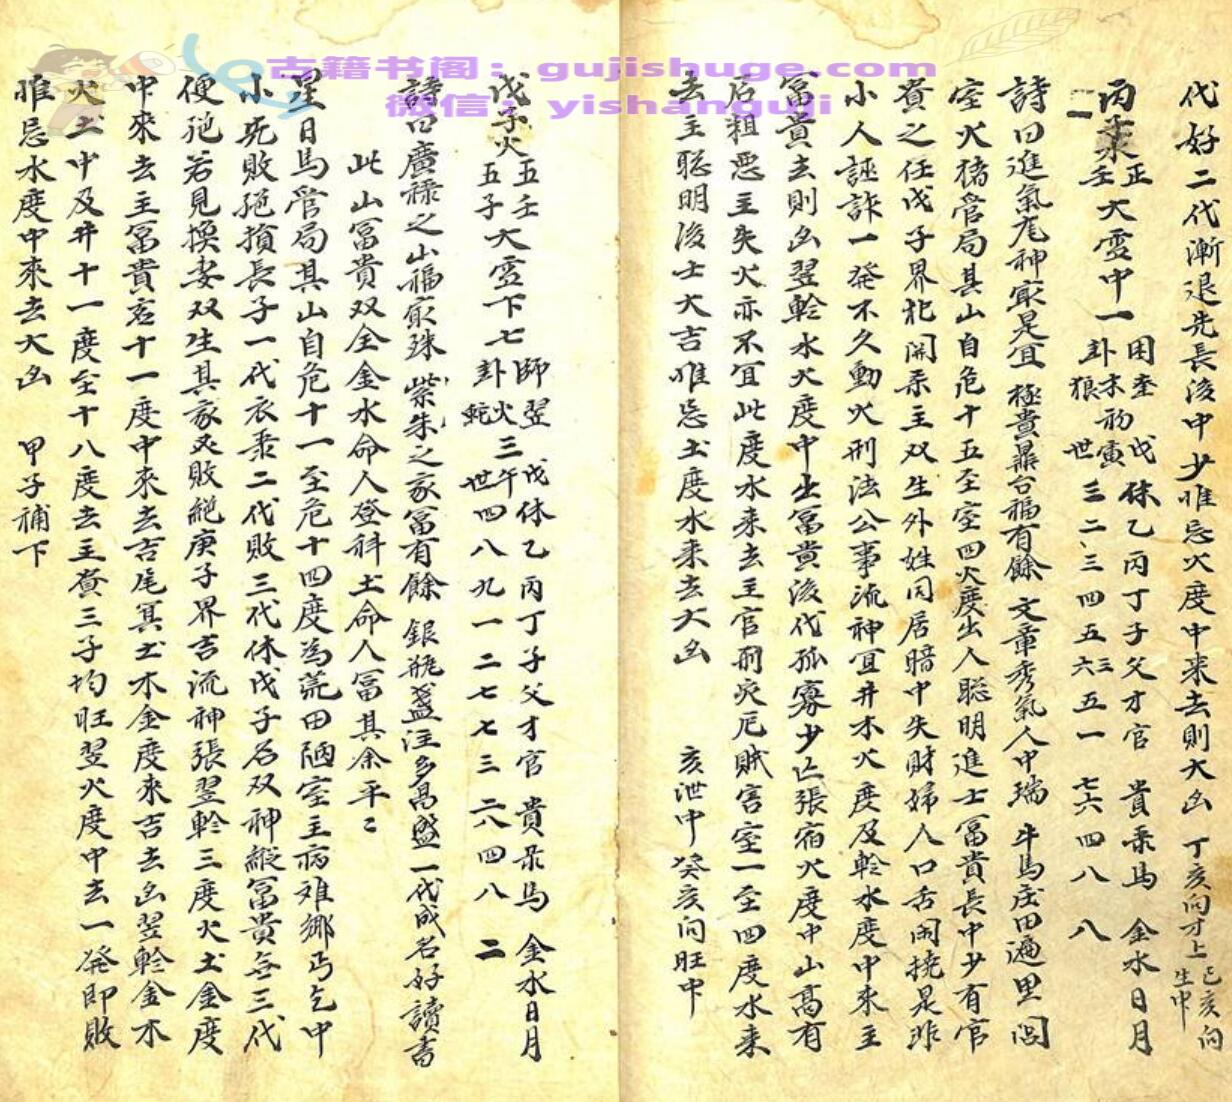 古籍书阁：gujishuge.com
微信：yishanguji
代好二代漸退先長後中少惟忌火度中来去則大凶 丁亥向才上 己亥向生中
正壬大雪中一 用奎 卦木 狼 初寅世 戊休乙丙丁子父才官 貴彔馬 金水日月
三二三四五六三五一 七六四八 八
詩曰進氣尾神㝡是宜 極貴鼎台福有餘 文章秀氣人中瑞 牛馬庄田遍里閭
室火猪管局其山自危十五至室四火度出人聡明進士冨貴長中少有官
資之任戊子界犯開彔主双生外姓同居暗中失財婦人口舌鬧撓是非
小人誣詐一發不久動火刑法公事流神宜井木火度及軫水度中来主
冨貴去則凶翌軫水火度中出冨貴後代孤寡少亡張宿火度中山高有
石粗惡主失火亦不宜此度水来去主官刑灾厄賊害室一至四度水来
去主聡明後士大吉惟忌土度水来去大凶 亥泄中癸亥向旺中
戊子火 五壬五子大雪下七 師卦 翌火蛇 三午世 戊休乙丙丁子父才官 貴彔馬 金水日月
四八九一二七七三 二六四八 二
詩曰廣禄之山福㝡殊 紫朱之家冨有餘 銀瓶盞注多高盛 一代成名好讀書
此山冨貴双全金水命人登科土命人冨其余平二
星日馬管局其山自危十一至危十四度為荒田陋室主病难鄉丐乞中
小死敗絕損長子一代衣彔二代敗三代休戊子名双神縱冨貴無三代
便絕若見換妻双生其家必敗絕庚子界吉流神張翌軫三度火土金度
中來去主冨貴危十一度中來去吉尾箕土木金度來吉去凶翌軫金木
火土中及井十一度至十八度去主賫三子均旺翌火度中去一發即敗
惟忌水度中來去大凶 甲子補下